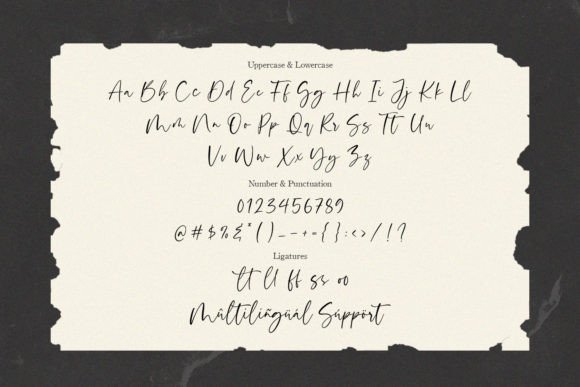 Uppercase & Lowercase
Aa Bb Cc Dd Ee Ff Gg Hh Ii Jj Kk Ll
Mm Nn Oo Pp Qq Rr Ss Tt Uu
Vv Ww Xx Yy Zz
Number & Punctuation
0123456789
@#$%&*()_-+={}:<>/!?
Ligatures
tt ll ff ss oo
Múltilíñgüál Süppört